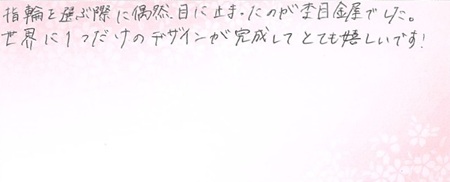 指輪を選ぶ際に偶然、目に止まったのが杢目金屋でした。
世界に1つだけのデザインが完成してとても嬉しいです!